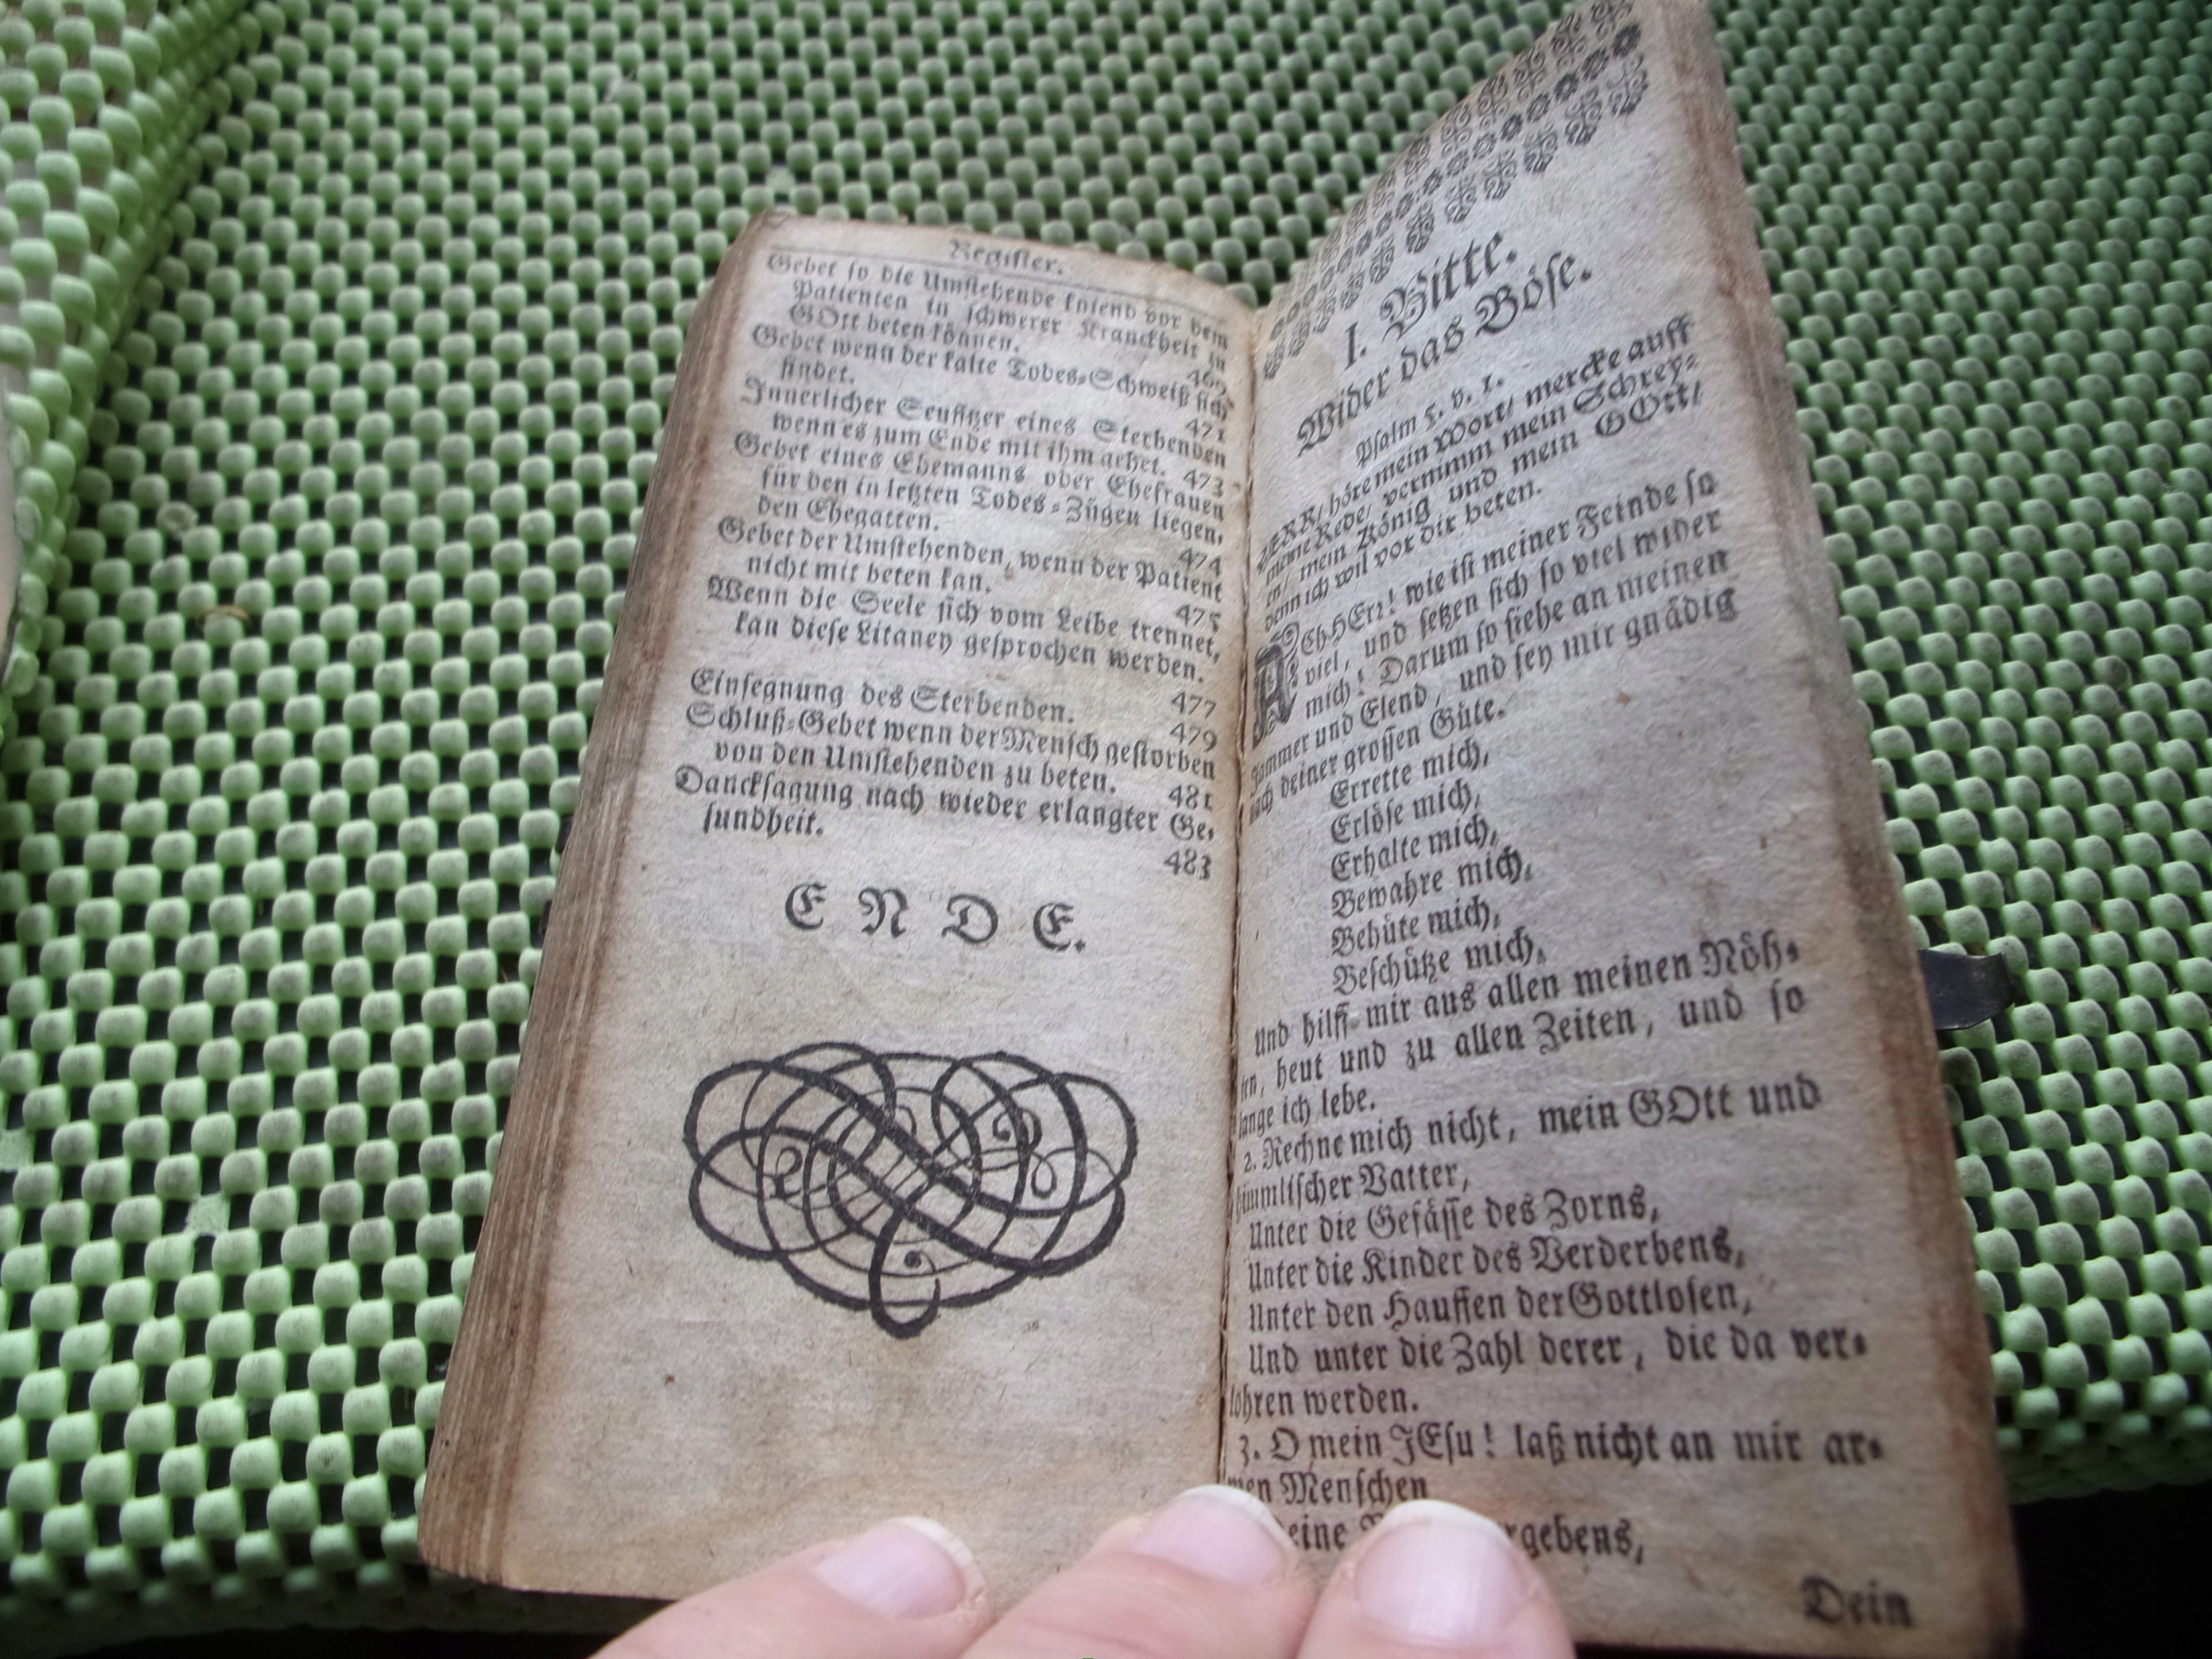 Register.
Gebet so die Umstehende kniend vor dem
Patienten in schwerer Kranckheit zu
GOtt beten können. 469
Gebet wenn der kalte Todes-Schweiß sich
findet. 471
Innerlicher Seufftzer eines Sterbenden
wenn es zum Ende mit ihm gehet. 473
Gebet eines Ehemanns oder Ehefrauen
für den in letzten Todes-Zügen liegen,
den Ehegatten. 474
Gebet der Umstehenden, wenn der Patient
nicht mit beten kan. 475
Wenn die Seele sich vom Leibe trennet,
kan diese Litaney gesprochen werden.
477
Einsegnung des Sterbenden. 479
Schluß-Gebet wenn der Mensch gestorben
von den Umstehenden zu beten. 481
Dancksagung nach wieder erlangter Ge,
sundheit. 483
E N D E.
I. Bitte.
Wider das Böse.
Psalm 5. v. 1.
HERR/ höre mein Wort/ mercke auff
meine Rede/ vernimm mein Schrey-
en/ mein König und mein GOtt/
denn ich wil vor dir beten.
ACh HErr! wie ist meiner Feinde so
viel, und setzen sich so viel wider
mich! Darum so siehe an meinen
Jammer und Elend, und sey mir gnädig
nach deiner grossen Güte.
Errette mich,
Erlöse mich,
Erhalte mich,
Bewahre mich,
Behüte mich,
Beschütze mich,
Und hilff mir aus allen meinen Nöh-
ten, heut und zu allen Zeiten, und so
lange ich lebe.
2. Rechne mich nicht, mein GOtt und
himmlischer Vatter,
Unter die Gefässe des Zorns,
Unter die Kinder des Verderbens,
Unter den Hauffen der Gottlosen,
Und unter die Zahl derer, die da ver-
lohren werden.
3. O mein JEsu! laß nicht an mir ar-
men Menschen
Dein